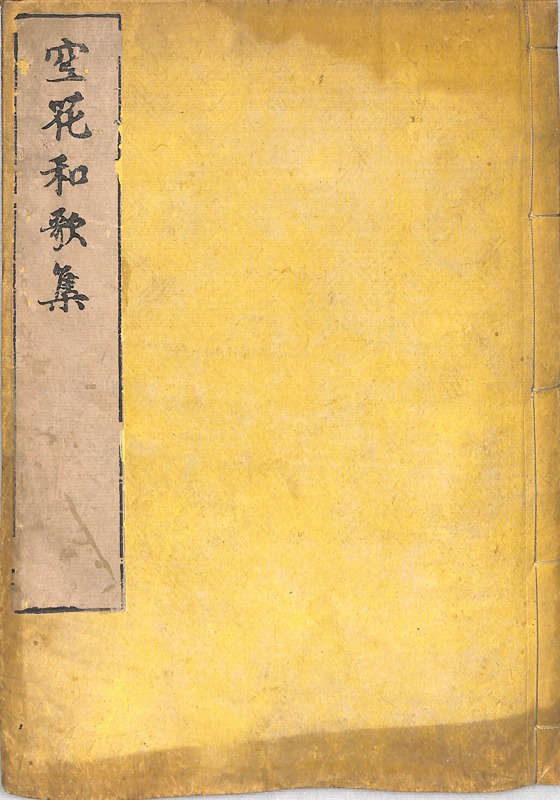 空花和歌集